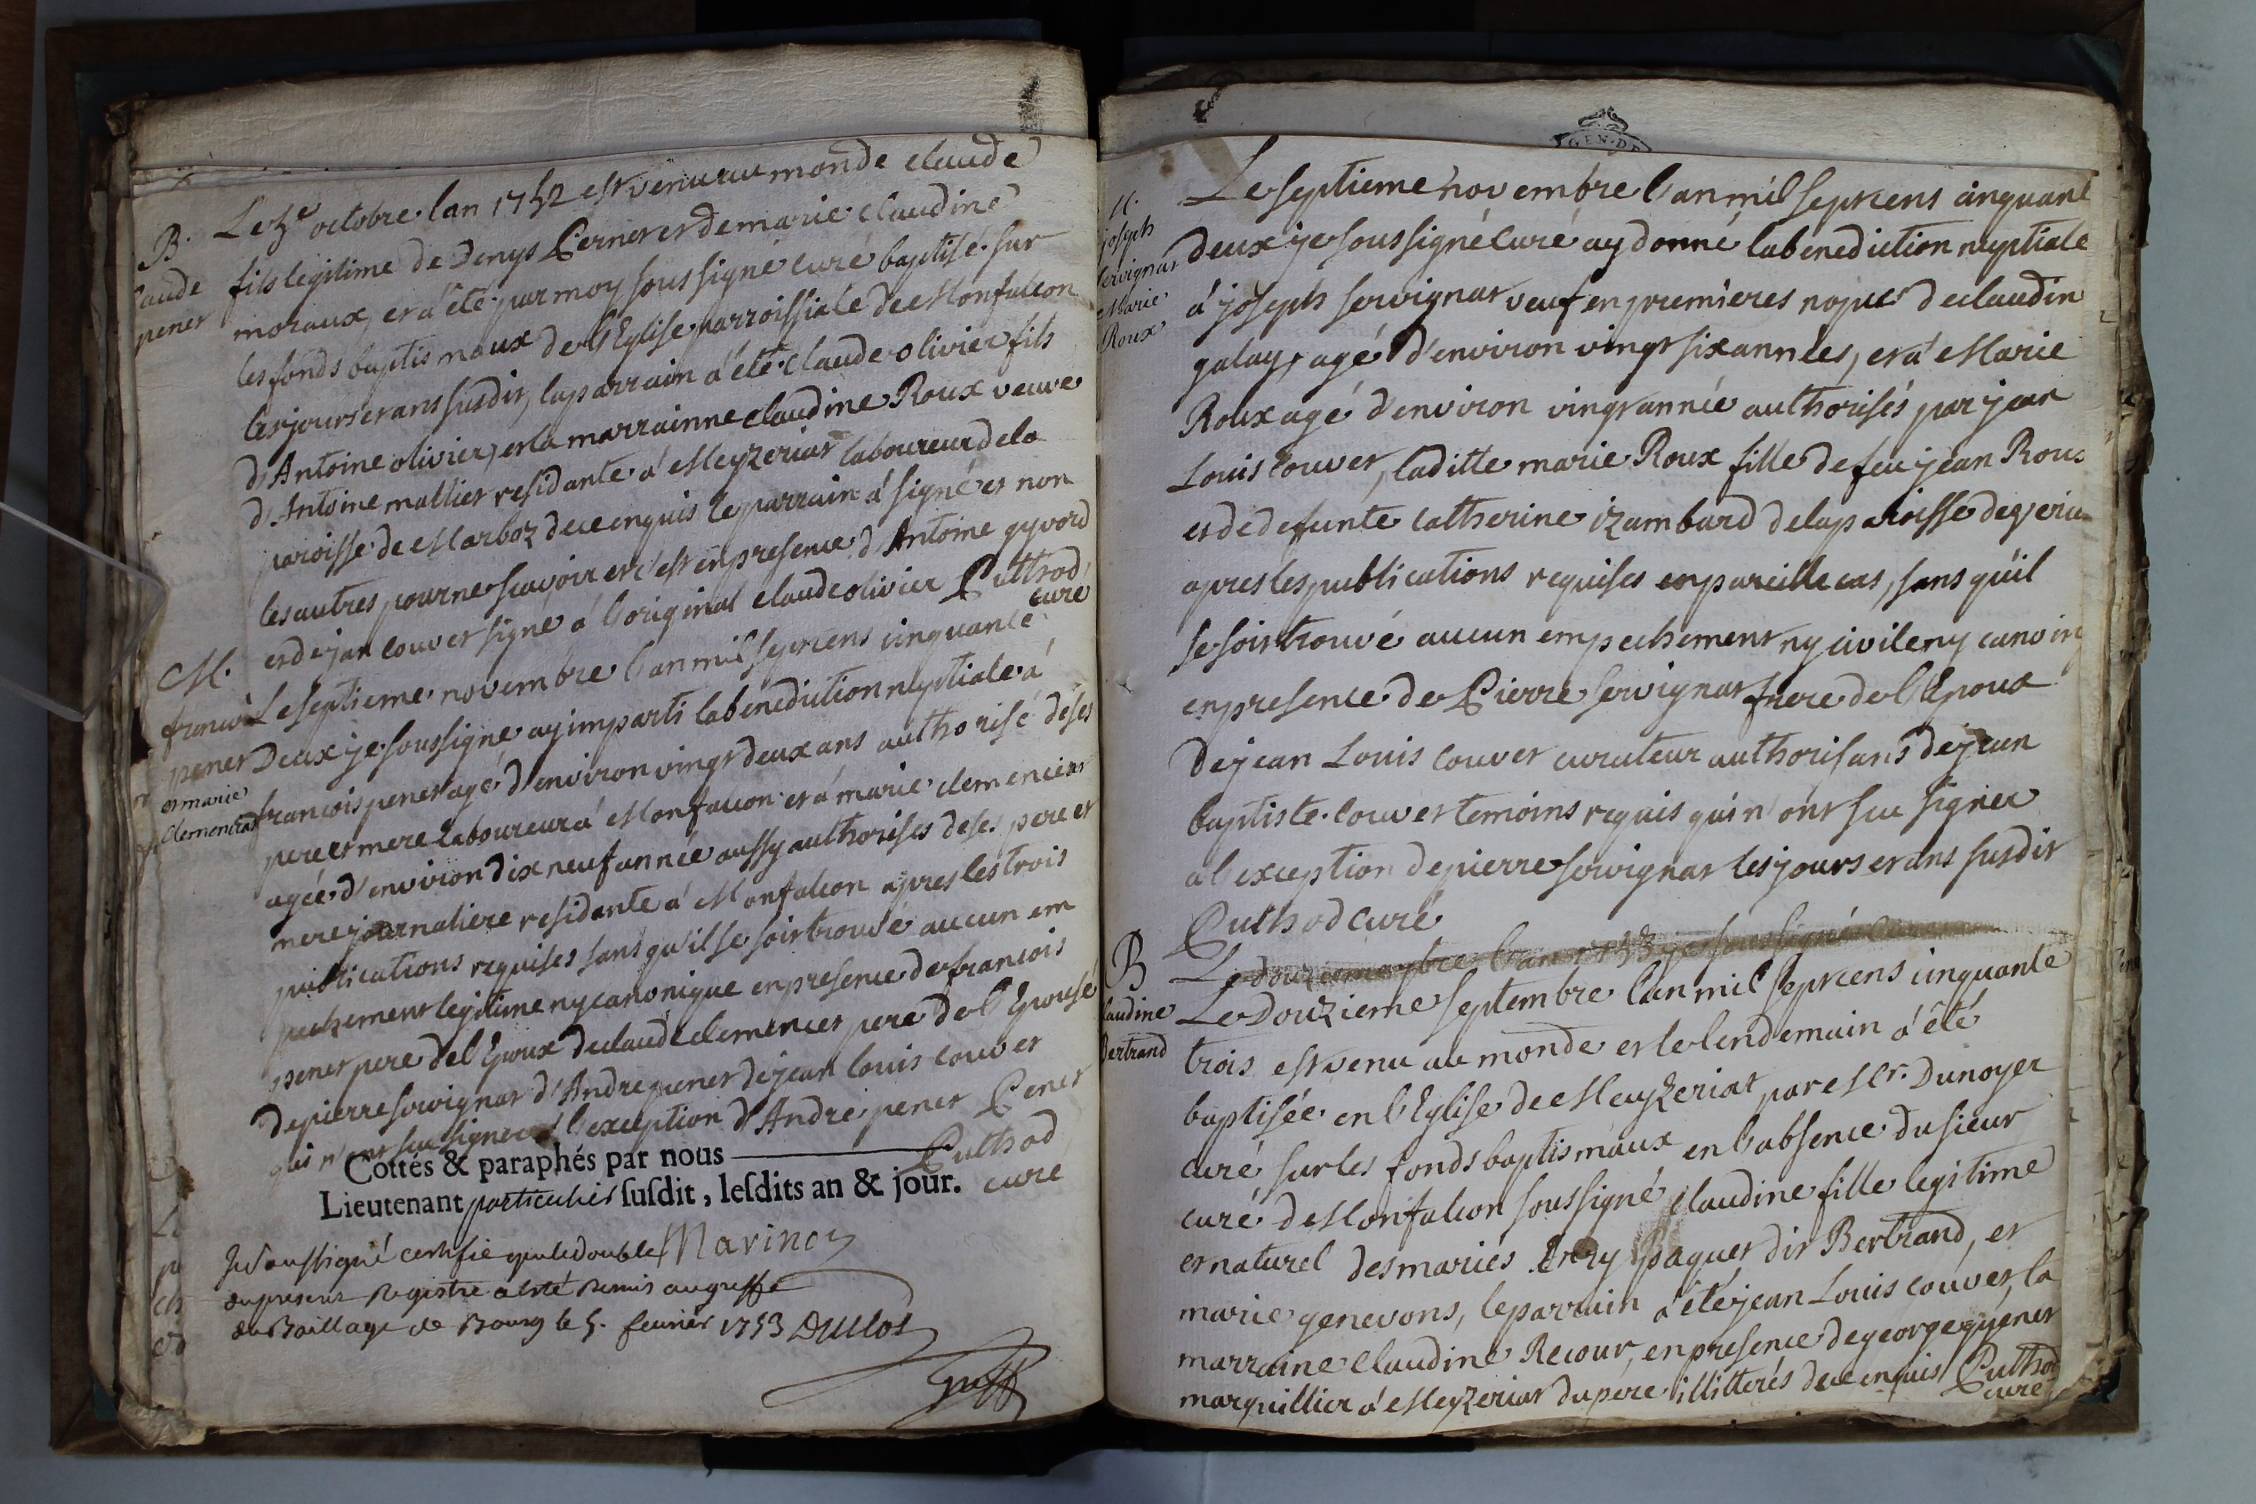 B.
Claude
pener
Le 3e octobre lan 1752 est venu au monde claude
fils legitime de Denys Perner et de marie claudine
moraux, et a été par moy soussigné curé baptisé sur
les fonds baptismaux de l'Eglise parroissiale de Monfalcon
les jours et ans susdit, le parrain a été claude olivier fils
d'Antoine olivier, et la marrainne claudine Roux veuve
d'Antoine mallier residante a Meyzeriat laboureur de la
paroisse de Marboz de ce enquis le parrain a signé et non
les autres pour ne scavoir et c'est en presence d'Antoine gyvord
et de jan couver signe a l'original claude olivier Puthod
curé
M.
francois
pener
et marie
Clemencias
Le septieme novembre l'an mil sept cens cinquante
Deux je soussigné ay imparti la bénédiction nuptiale a
francois pener agé d'environ vingt deux ans authorisé de ses
pere et mere laboureur a Monfalcon et a marie clemencias
agée d'environ dix neuf année aussy authorisés de ses pere et
mere journaliere residante a Monfalcon apres les trois
publications requises sans qu'il se soit trouvé aucun em
pechement legitime ny canonique en presence de francois
pener pere de l'Epoux de claude clemencet pere de l'Epousé
de pierre servignat d'André pener de jean louis couver
qui n'ont scu signer a l'exception d'André pener Pener
Puthod
curé
Cottés & paraphés par nous
Lieutenant particulier susdit, lesdits an & jour.
Marinon
Je soussigné certifie que le double
du present Registre a esté Remis au greffe
du Baillage de Bourg le 5. fevrier 1753 Duclos
greff
M.
joseph
servignat
Marie
Roux
Le septieme novembre l'an mil sept cens cinquant
deux je soussigné curé ay donné la benediction nuptiale
a joseph servignat veuf en premieres nopces de claudin
galay, agé d'environ vingt six années, et a Marie
Roux agé d'environ vingt année authorisés par jean
Louis couver, laditte marie Roux fille de feu jean Roux
et de defunte catherine izambard de la paroisse de
apres les publications requises en pareille cas, sans qu'il
se soit trouvé aucun empechement ny civile ny canoni
en presence de Pierre servignat frere de l'Epoux
de jean Louis couver curateur authorisant de jean
baptiste couver temoins requis qui n'ont scu signer
a l'exception de pierre servignat les jours et ans susdit
Puthod curé
B
Claudine
Bertrand
Le Douzieme septembre l'an mil sept cens cinquante
trois est venu au monde et le lendemain a été
baptisée en l'Eglise de Meyzeriat par Mr. Dunoyer
curé sur les fonds baptismaux en l'absence du sieur
curé de Monfalcon soussigné claudine fille legitime
et naturel des mariés paquet dit Bertrand, et
marie genevons, le parrain a été jean Louis couver, la
marraine claudine Recour, en presence de george guenet
marguillier a Meyzeriat du pere illitterés de ce enquis Puthod
curé